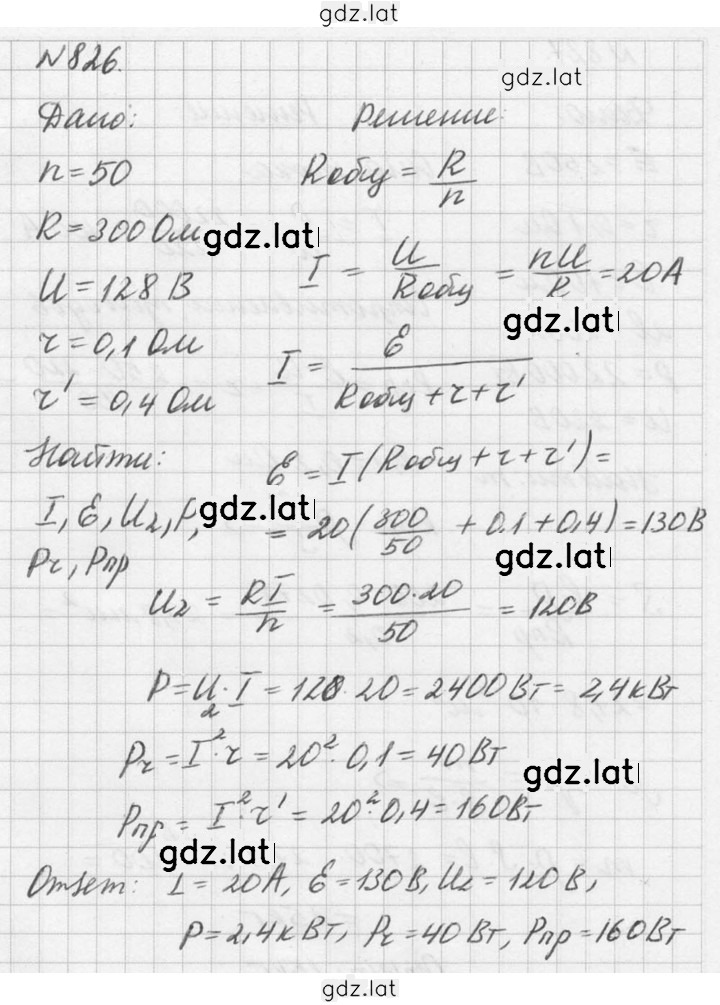 gdz.lat
N826.
gdz.lat
Дано: Решение:
n = 50 Rобщ = R/n
R = 300 Ом gdz.lat
U = 128 В I = U/Rобщ = nU/R = 20А
gdz.lat
r = 0,1 Ом I = ℰ/(Rобщ + r + r')
r' = 0,4 Ом
Найти: ℰ = I(Rобщ + r + r') =
I, ℰ, U₂, P, gdz.lat = 20(300/50 + 0.1 + 0,4) = 130В
Pr, Pпр gdz.lat
U₂ = RI/n = 300·20/50 = 120В
P = U₂·I = 128·20 = 2400Вт = 2,4кВт
Pr = I²·r = 20²·0,1 = 40Вт
gdz.lat
Pпр = I²·r' = 20²·0,4 = 160Вт
gdz.lat
Ответ: I = 20А, ℰ = 130В, U₂ = 120В,
P = 2,4кВт, Pr = 40Вт, Pпр = 160Вт
gdz.lat